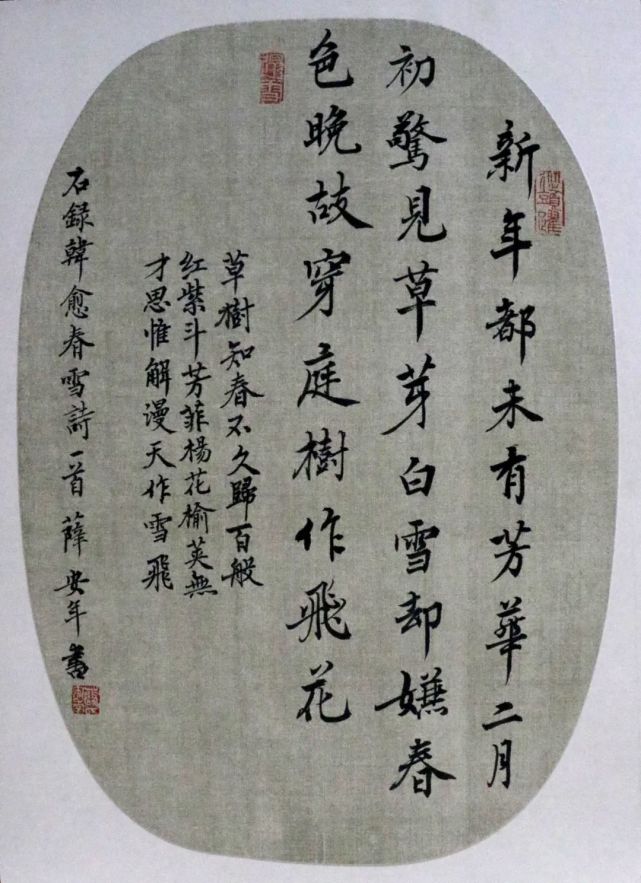 新年都未有芳華二月
初驚見草芽白雪却嫌春
色晚故穿庭樹作飛花
草樹知春不久歸百般
红紫斗芳菲楊花榆荚無
才思惟解漫天作雪飛
石録韓愈春雪詩一首薛安年書